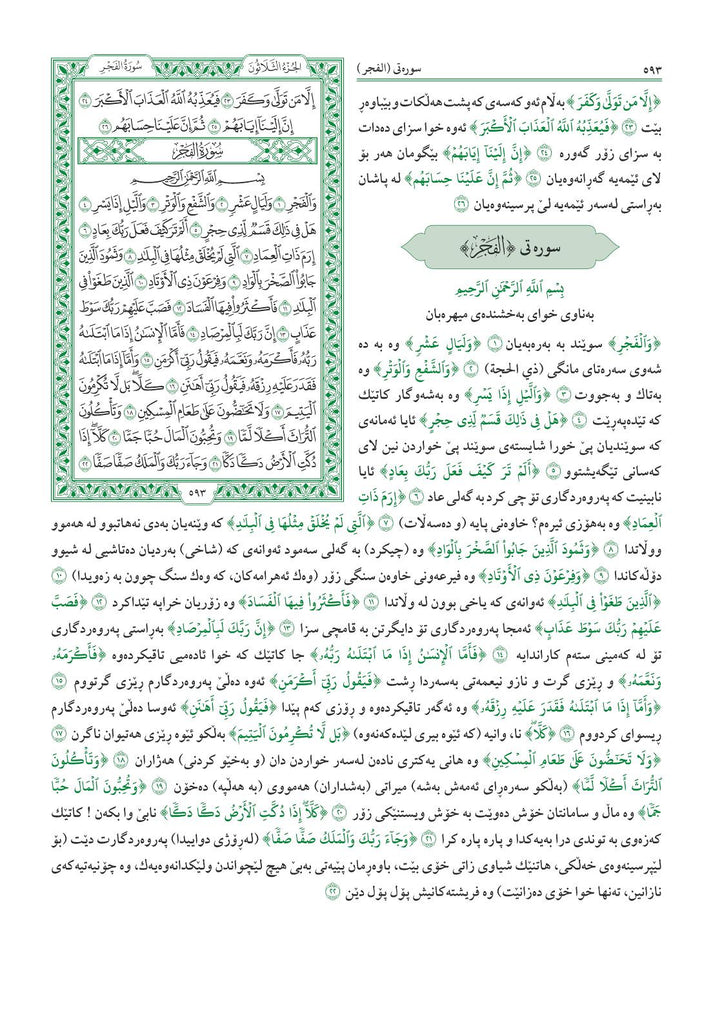 ٥٩٣
سورەتی (الفجر)
﴿إِلَّا مَن تَوَلَّىٰ وَكَفَرَ﴾ بەڵام ئەو کەسەی کە پشت هەڵکات و بێباوەڕ
بێت ٢٣ ﴿فَيُعَذِّبُهُ ٱللَّهُ ٱلْعَذَابَ ٱلْأَكْبَرَ﴾ ئەوە خوا سزای دەدات
بە سزای زۆر گەورە ٢٤ ﴿إِنَّ إِلَيْنَآ إِيَابَهُمْ﴾ بێگومان هەر بۆ
لای ئێمەیە گەڕانەوەیان ٢٥ ﴿ثُمَّ إِنَّ عَلَيْنَا حِسَابَهُم﴾ لە پاشان
بەڕاستی لەسەر ئێمەیە لێ پرسینەوەیان ٢٦
سورەتی ﴿الفَجْرِ﴾
بِسْمِ ٱللَّهِ ٱلرَّحْمَٰنِ ٱلرَّحِيمِ
بەناوی خوای بەخشندەی میهرەبان
﴿وَٱلْفَجْرِ﴾ سوێند بە بەرەبەیان ١ ﴿وَلَيَالٍ عَشْرٍ﴾ وە بە دە
شەوی سەرەتای مانگی (ذي الحجة) ٢ ﴿وَٱلشَّفْعِ وَٱلْوَتْرِ﴾ وە
بەتاك و بەجووت ٣ ﴿وَٱلَّيْلِ إِذَا يَسْرِ﴾ وە بەشەوگار کاتێك
کە تێدەپەڕێت ٤ ﴿هَلْ فِى ذَٰلِكَ قَسَمٌ لِّذِى حِجْرٍ﴾ ئایا ئەمانەی
کە سوێندیان پێ خورا شایستەی سوێند پێ خواردن نین لای
کەسانی تێگەیشتوو ٥ ﴿أَلَمْ تَرَ كَيْفَ فَعَلَ رَبُّكَ بِعَادٍ﴾ ئایا
نابینیت کە پەروەردگاری تۆ چی کرد بە گەلی عاد ٦ ﴿إِرَمَ ذَاتِ
ٱلْعِمَادِ﴾ وە بەهۆزی ئیرەم؟ خاوەنی پایە (و دەسەڵات) ٧ ﴿ٱلَّتِى لَمْ يُخْلَقْ مِثْلُهَا فِى ٱلْبِلَٰدِ﴾ کە وێنەیان بەدی نەهاتبوو لە هەموو
ووڵاتدا ٨ ﴿وَثَمُودَ ٱلَّذِينَ جَابُوا۟ ٱلصَّخْرَ بِٱلْوَادِ﴾ وە (چیکرد) بە گەلی سەمود ئەوانەی کە (شاخی) بەردیان دەتاشیی لە شیوو
دۆڵەکاندا ٩ ﴿وَفِرْعَوْنَ ذِى ٱلْأَوْتَادِ﴾ وە فیرعەونی خاوەن سنگی زۆر (وەك ئەهرامەکان، کە وەك سنگ چوون بە زەویدا) ١٠
﴿ٱلَّذِينَ طَغَوْا۟ فِى ٱلْبِلَٰدِ﴾ ئەوانەی کە یاخی بوون لە وڵاتدا ١١ ﴿فَأَكْثَرُوا۟ فِيهَا ٱلْفَسَادَ﴾ وە زۆریان خراپە تێداکرد ١٢ ﴿فَصَبَّ
عَلَيْهِمْ رَبُّكَ سَوْطَ عَذَابٍ﴾ ئەمجا پەروەردگاری تۆ دایگرتن بە قامچی سزا ١٣ ﴿إِنَّ رَبَّكَ لَبِٱلْمِرْصَادِ﴾ بەڕاستی پەروەردگاری
تۆ لە کەمینی ستەم کاراندایە ١٤ ﴿فَأَمَّا ٱلْإِنسَٰنُ إِذَا مَا ٱبْتَلَىٰهُ رَبُّهُۥ﴾ جا کاتێك کە خوا ئادەمیی تاقیکردەوە ﴿فَأَكْرَمَهُۥ
وَنَعَّمَهُۥ﴾ و ڕێزی گرت و نازو نیعمەتی بەسەردا ڕشت ﴿فَيَقُولُ رَبِّىٓ أَكْرَمَنِ﴾ ئەوە دەڵێ پەروەردگارم ڕێزی گرتووم ١٥
﴿وَأَمَّآ إِذَا مَا ٱبْتَلَىٰهُ فَقَدَرَ عَلَيْهِ رِزْقَهُۥ﴾ وە ئەگەر تاقیکردەوە و ڕۆزی کەم پێدا ﴿فَيَقُولُ رَبِّىٓ أَهَٰنَنِ﴾ ئەوسا دەڵێ پەروەردگارم
ڕیسوای کردووم ١٦ ﴿كَلَّا﴾ نا، وانیە (کە ئێوە بیری لێدەکەنەوە) ﴿بَل لَّا تُكْرِمُونَ ٱلْيَتِيمَ﴾ بەڵکو ئێوە ڕێزی هەتیوان ناگرن ١٧
﴿وَلَا تَحَٰٓضُّونَ عَلَىٰ طَعَامِ ٱلْمِسْكِينِ﴾ وە هانی یەکتری نادەن لەسەر خواردن دان (و بەخێو کردنی) هەژاران ١٨ ﴿وَتَأْكُلُونَ
ٱلتُّرَاثَ أَكْلًا لَّمًّا﴾ (بەڵکو سەرەڕای ئەمەش بەشە) میراتی (بەشداران) هەمووی (بە هەڵپە) دەخۆن ١٩ ﴿وَتُحِبُّونَ ٱلْمَالَ حُبًّا
جَمًّا﴾ وە ماڵ و سامانتان خۆش دەوێت بە خۆش ویستنێکی زۆر ٢٠ ﴿كَلَّآ إِذَا دُكَّتِ ٱلْأَرْضُ دَكًّا دَكًّا﴾ نابێ وا بکەن ! کاتێك
کەزەوی بە توندی درا بەیەکدا و پارە پارە کرا ٢١ ﴿وَجَآءَ رَبُّكَ وَٱلْمَلَكُ صَفًّا صَفًّا﴾ (لەڕۆژی دواییدا) پەروەردگارت دێت (بۆ
لێپرسینەوەی خەڵکی، هاتنێك شیاوی زاتی خۆی بێت، باوەڕمان پێیەتی بەبێ هیچ لێچواندن ولێکدانەوەیەك، وە چۆنیەتیەکەی
نازانین، تەنها خوا خۆی دەزانێت) وە فریشتەکانیش پۆل پۆل دێن ٢٢
الجُزْءُ الثَّلَاثُونَ
سُورَةُ الفَجْرِ
إِلَّا مَن تَوَلَّىٰ وَكَفَرَ ٢٣ فَيُعَذِّبُهُ ٱللَّهُ ٱلْعَذَابَ ٱلْأَكْبَرَ ٢٤
إِنَّ إِلَيْنَآ إِيَابَهُمْ ٢٥ ثُمَّ إِنَّ عَلَيْنَا حِسَابَهُم ٢٦
سُورَةُ الفَجْرِ
بِسْمِ ٱللَّهِ ٱلرَّحْمَٰنِ ٱلرَّحِيمِ
وَٱلْفَجْرِ ١ وَلَيَالٍ عَشْرٍ ٢ وَٱلشَّفْعِ وَٱلْوَتْرِ ٣ وَٱلَّيْلِ إِذَا يَسْرِ ٤
هَلْ فِى ذَٰلِكَ قَسَمٌ لِّذِى حِجْرٍ ٥ أَلَمْ تَرَ كَيْفَ فَعَلَ رَبُّكَ بِعَادٍ ٦
إِرَمَ ذَاتِ ٱلْعِمَادِ ٧ ٱلَّتِى لَمْ يُخْلَقْ مِثْلُهَا فِى ٱلْبِلَٰدِ ٨ وَثَمُودَ ٱلَّذِينَ
جَابُوا۟ ٱلصَّخْرَ بِٱلْوَادِ ٩ وَفِرْعَوْنَ ذِى ٱلْأَوْتَادِ ١٠ ٱلَّذِينَ طَغَوْا۟ فِى
ٱلْبِلَٰدِ ١١ فَأَكْثَرُوا۟ فِيهَا ٱلْفَسَادَ ١٢ فَصَبَّ عَلَيْهِمْ رَبُّكَ سَوْطَ
عَذَابٍ ١٣ إِنَّ رَبَّكَ لَبِٱلْمِرْصَادِ ١٤ فَأَمَّا ٱلْإِنسَٰنُ إِذَا مَا ٱبْتَلَىٰهُ
رَبُّهُۥ فَأَكْرَمَهُۥ وَنَعَّمَهُۥ فَيَقُولُ رَبِّىٓ أَكْرَمَنِ ١٥ وَأَمَّآ إِذَا مَا ٱبْتَلَىٰهُ
فَقَدَرَ عَلَيْهِ رِزْقَهُۥ فَيَقُولُ رَبِّىٓ أَهَٰنَنِ ١٦ كَلَّا بَل لَّا تُكْرِمُونَ
ٱلْيَتِيمَ ١٧ وَلَا تَحَٰٓضُّونَ عَلَىٰ طَعَامِ ٱلْمِسْكِينِ ١٨ وَتَأْكُلُونَ
ٱلتُّرَاثَ أَكْلًا لَّمًّا ١٩ وَتُحِبُّونَ ٱلْمَالَ حُبًّا جَمًّا ٢٠ كَلَّآ إِذَا
دُكَّتِ ٱلْأَرْضُ دَكًّا دَكًّا ٢١ وَجَآءَ رَبُّكَ وَٱلْمَلَكُ صَفًّا صَفًّا ٢٢
٥٩٣